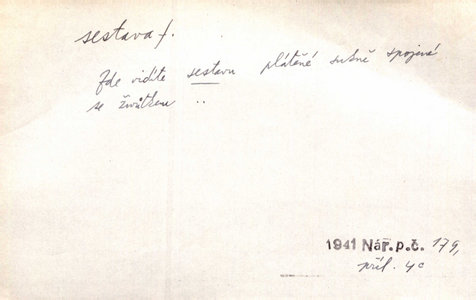 sestava f.
Zde vidíte sestavu plátěné sukně spojené
se živůtkem ..
1941 Nář.p.č. 179,
příl. 4c